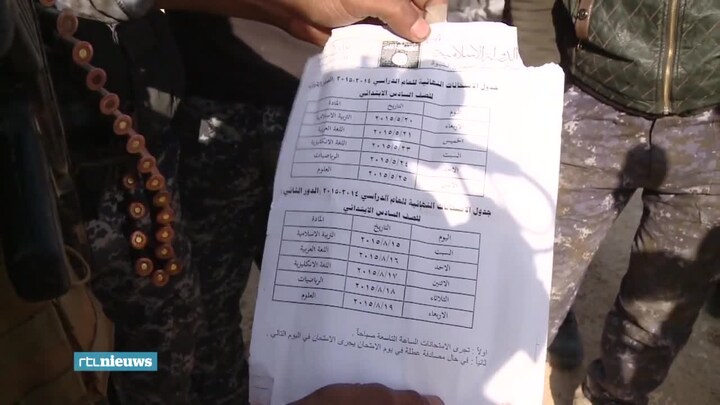 الدولة الاسلامية
جدول الامتحانات النهائية للعام الدراسي ٢٠١٤-٢٠١٥
للصف السادس الابتدائي
اليوم التاريخ المادة
الاربعاء ٢٠١٥/٥/٢٠ التربية الاسلامية
الخميس ٢٠١٥/٥/٢١ اللغة العربية
السبت ٢٠١٥/٥/٢٣ اللغة الانكليزية
الاحد ٢٠١٥/٥/٢٤ الرياضيات
٢٠١٥/٥/٢٥ العلوم
جدول الامتحانات النهائية للعام الدراسي ٢٠١٤-٢٠١٥ (الدور الثاني)
للصف السادس الابتدائي
اليوم التاريخ المادة
السبت ٢٠١٥/٨/١٥ التربية الاسلامية
الاحد ٢٠١٥/٨/١٦ اللغة العربية
الاثنين ٢٠١٥/٨/١٧ اللغة الانكليزية
الثلاثاء ٢٠١٥/٨/١٨ الرياضيات
الاربعاء ٢٠١٥/٨/١٩ العلوم
اولاً : تجرى الامتحانات الساعة التاسعة صباحاً .
ثانياً : في حال مصادفة عطلة في يوم الامتحان يجرى الامتحان في اليوم التالي .
rtl nieuws